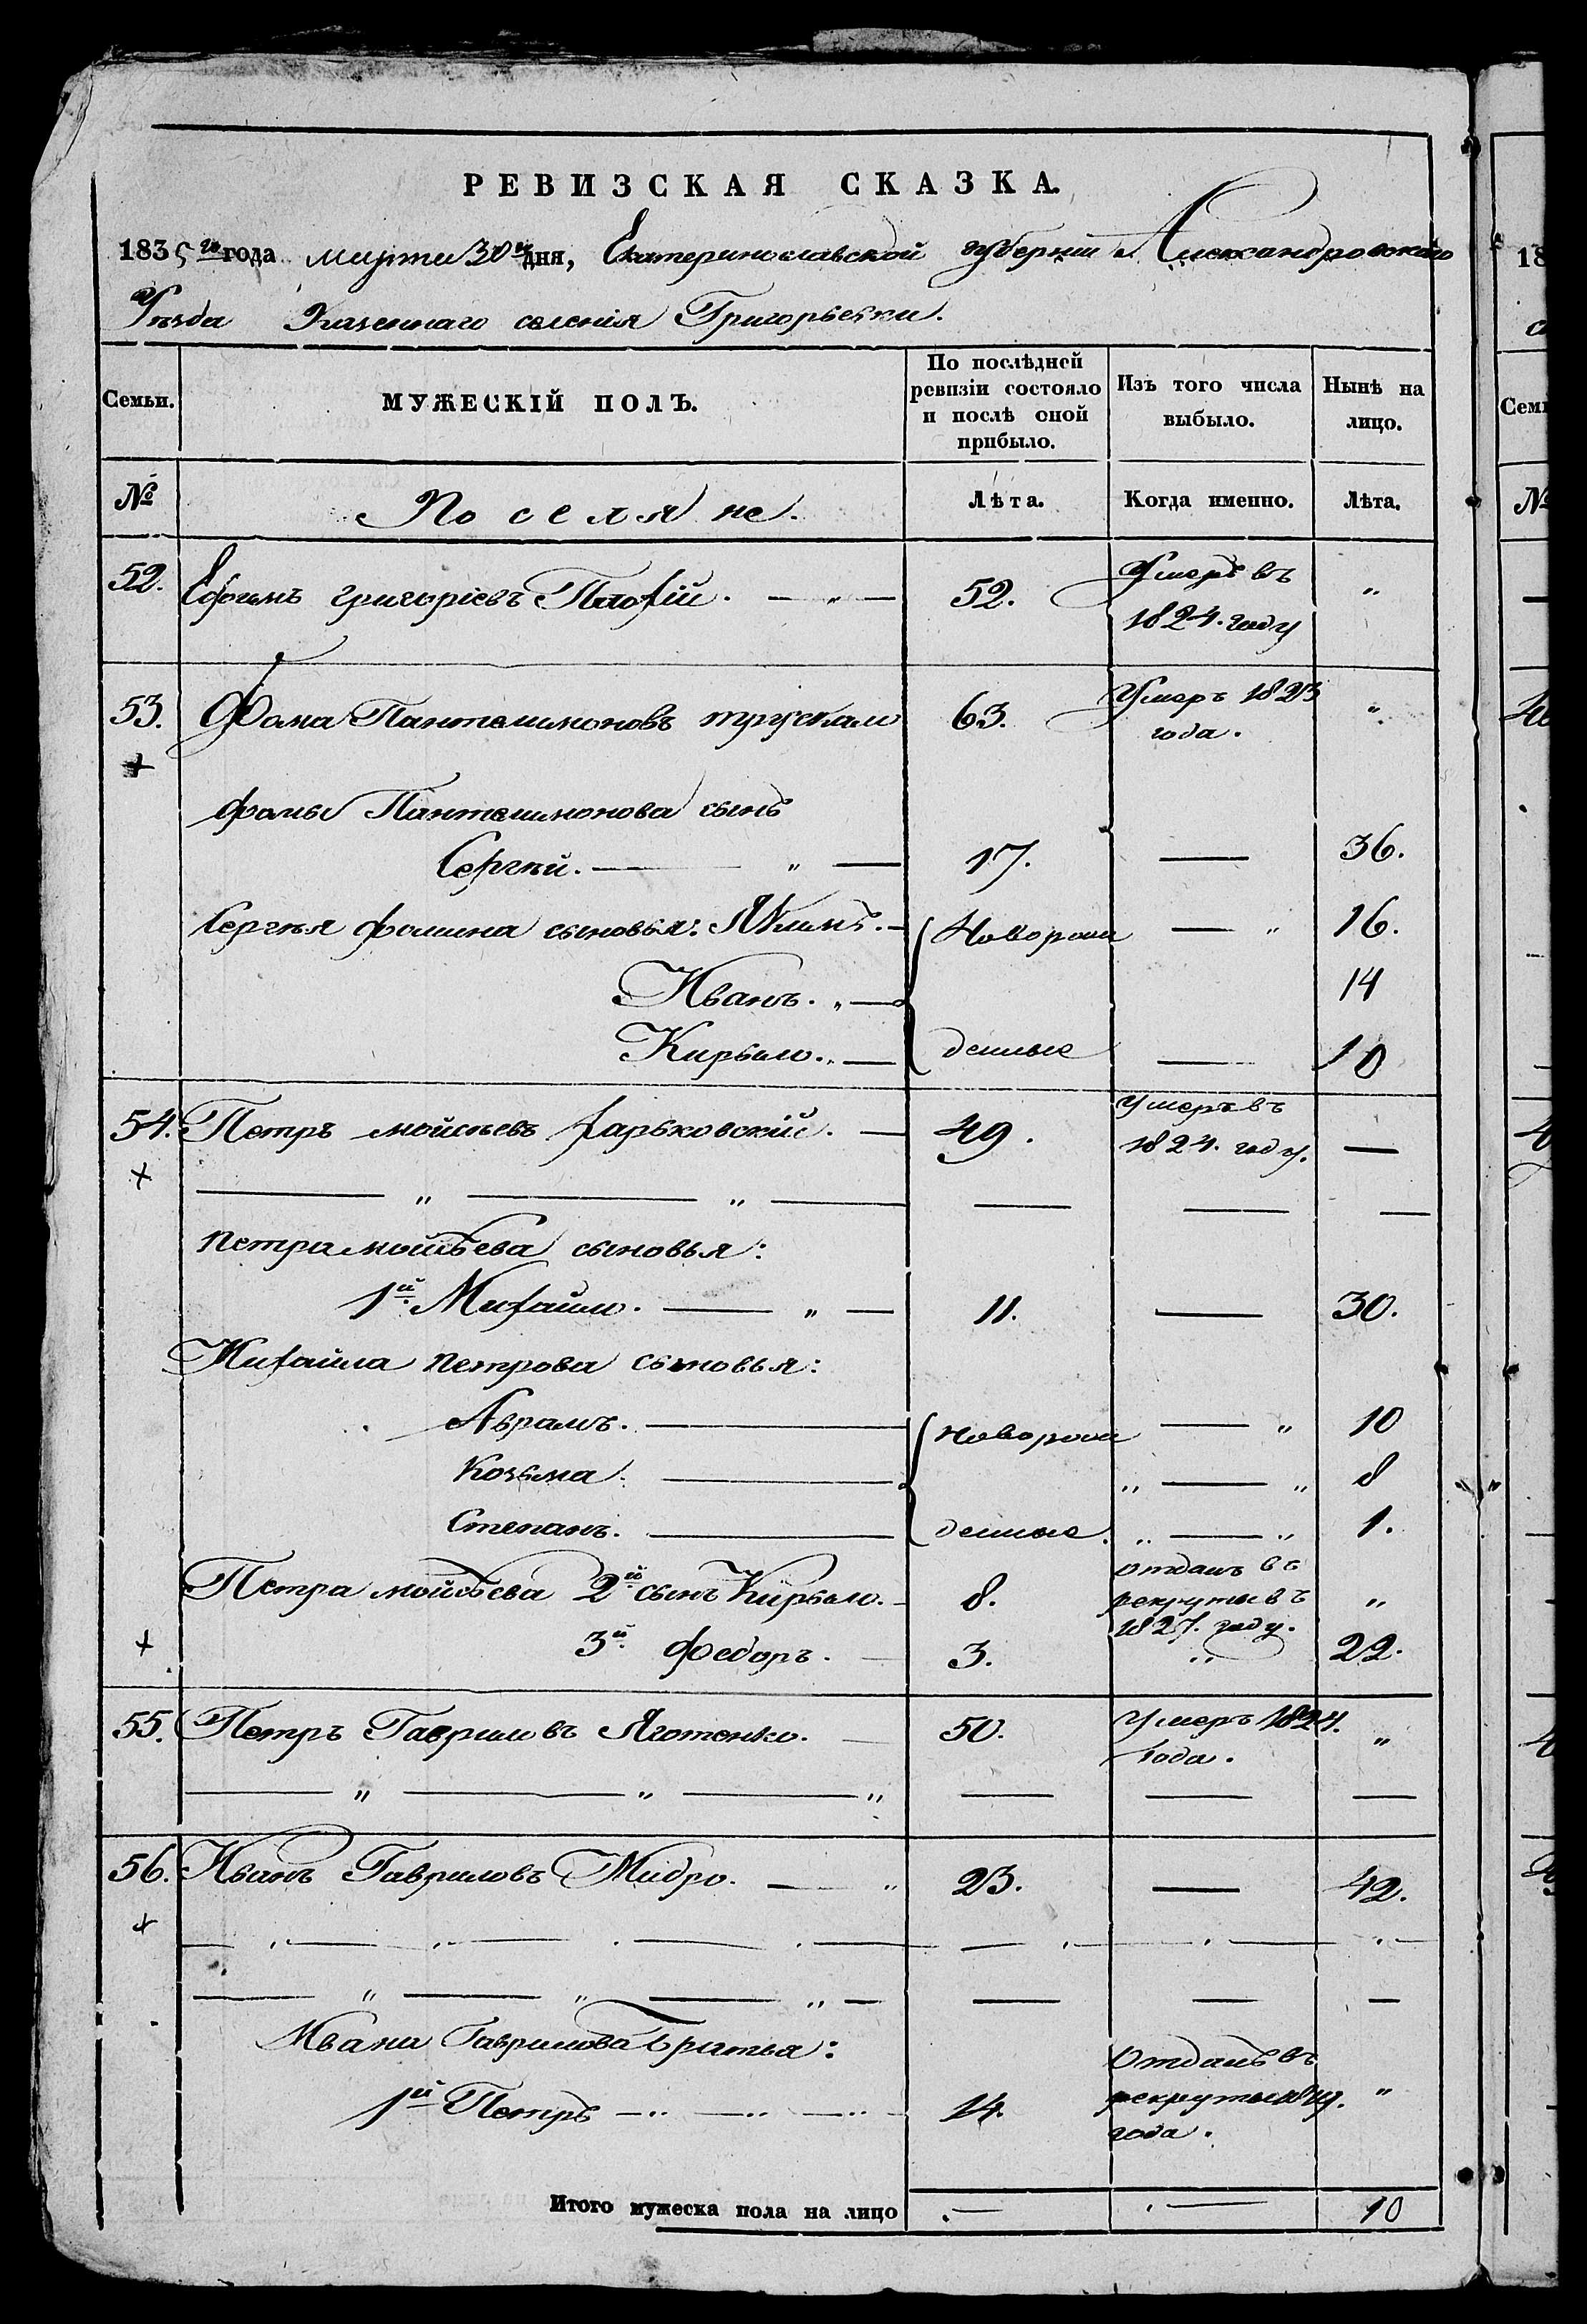 РЕВИЗСКАЯ СКАЗКА.
1835 го года марта 30 дня, Екатеринославской губернии Александровского
Уѣзда Казенного селенія Григорьевки.
Семьи. МУЖЕСКІЙ ПОЛЪ. По послѣдней ревизіи состояло и послѣ оной прибыло. Изъ того числа выбыло. Нынѣ на лицо.
№ Поселяне. Лѣта. Когда именно. Лѣта.
52. Ефимъ григоріевъ 52. Умеръ въ 1824. году "
53. Фома Пантелимоновъ трускало 63. Умеръ 1823 года. "
фомы Пантелимонова сынъ
Сергѣй. 17. — 36.
Сергѣя фомина сыновья: Якимъ. Новорож — " 16.
Иванъ. 14
Кирыло. денные — 10
54. Петръ мойсѣевъ харьковскій. 49. Умеръ въ 1824. году. —
петра мойсѣева сыновья:
1й Михайло. 11. — 30.
Михайла петрова сыновья:
Аврамъ. новорож — " 10
Козьма. " — " 8
Степанъ. денные. " — " 1.
Петра мойсѣева 2й сынъ Кирыло. 8. отданъ въ рекруты въ 1827. году. "
3й федоръ. 3. " 22.
55. Петръ Гавриловъ Яготенко. 50. Умеръ 1824. года. "
56. Иванъ Гавриловъ Мидро. 23. — 42.
Ивана Гаврилова братья:
1й Петръ 14. Отданъ въ рекруты года. "
Итого мужеска пола на лицо — — 10
18
Сем
№